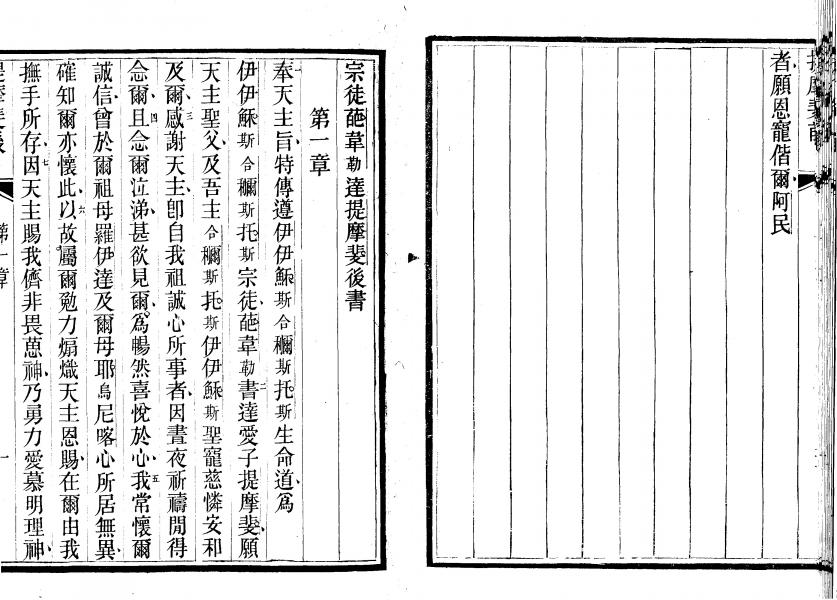 者願恩寵偕爾阿民
宗徒葩韋勒達提摩斐後書
第一章
奉天主旨特傳遵伊伊穌斯合穪斯托斯生命道爲
伊伊穌斯合穪斯托斯宗徒葩韋勒二書達愛子提摩斐願
天主聖父及吾主合穪斯托斯伊伊穌斯聖寵慈憐安和
及爾三感謝天主卽自我祖誠心所事者因晝夜祈禱閒得
念爾四且念爾泣涕甚欲見爾爲暢然喜悅於心五我常懷爾
誠信曾於爾祖母羅伊達及爾母耶烏尼喀心所居無異
確知爾亦懷此六以故屬爾勉力煽熾天主恩賜在爾由我
撫手所存七因天主賜我儕非畏葸神乃勇力愛慕明理神
第一章
一